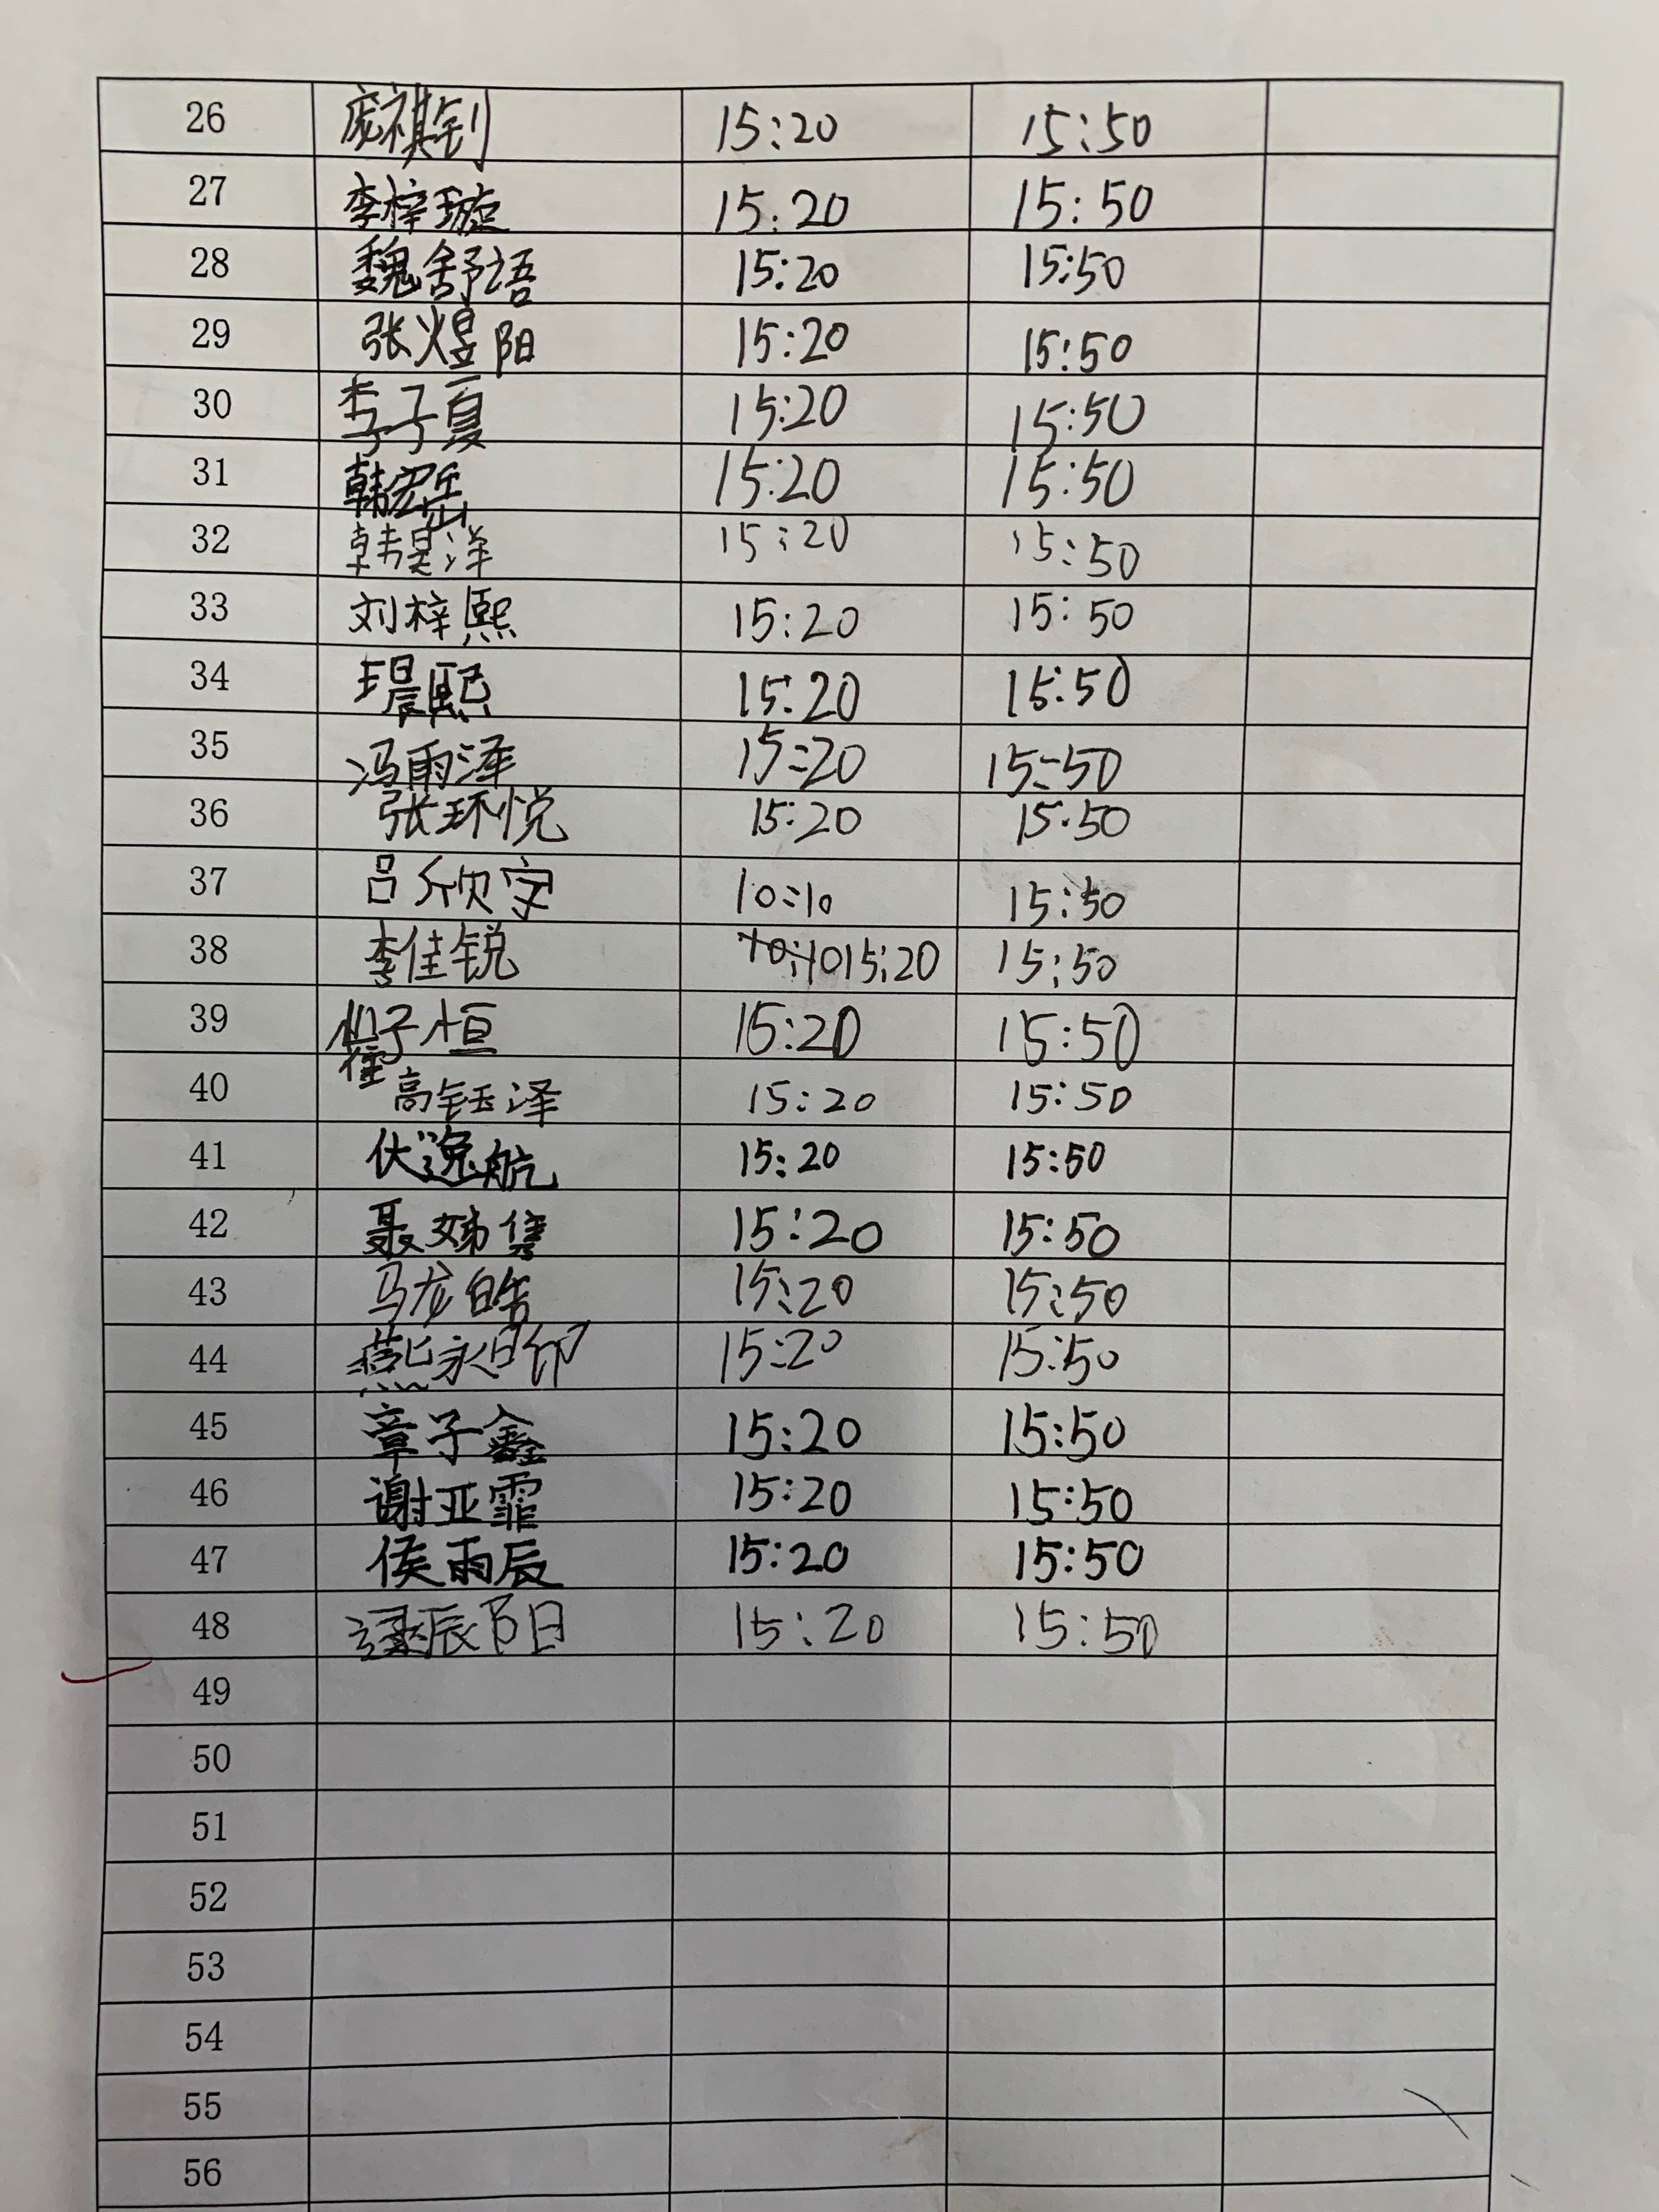 26 庞祺钊 15:20 15:50
27 李梓璇 15:20 15:50
28 魏舒语 15:20 15:50
29 张煜阳 15:20 15:50
30 李子夏 15:20 15:50
31 韩宏岳 15:20 15:50
32 韩昊洋 15:20 15:50
33 刘梓熙 15:20 15:50
34 熙 15:20 15:50
35 冯雨泽 15:20 15:50
36 张环悦 15:20 15:50
37 吕欣 10:10 15:50
38 李佳锐 10:10 15:20 15:50
39 子恒 15:20 15:50
40 高钰泽 15:20 15:50
41 伏逸航 15:20 15:50
42 聂 15:20 15:50
43 马龙皓 15:20 15:50
44 燕永 15:20 15:50
45 章子鑫 15:20 15:50
46 谢亚霏 15:20 15:50
47 侯雨辰 15:20 15:50
48 辰阳 15:20 15:50
49
50
51
52
53
54
55
56